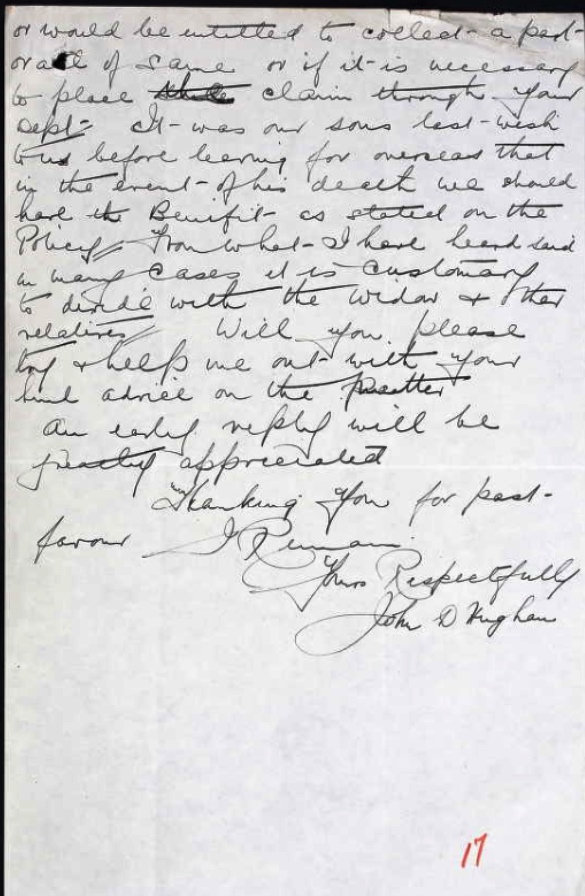 or would be entitled to collect a part
or all of same or if it is necessary
to place claim through your
Dept. It was our sons last wish
to us before leaving for overseas that
in the event of his death we should
have the Benifit as stated on the
Policy From what I have heard said
in many cases it is customary
to divide with the Widow & other
relatives Will you please
try & help me out with your
kind advice on the matter
An early reply will be
greatly appreciated
Thanking you for past
favour I Remain
Yours Respectfully
John D
17